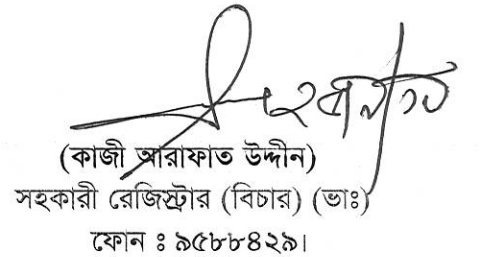 (কাজী আরাফাত উদ্দীন)
সহকারী রেজিস্ট্রার (বিচার) (ভাঃ)
ফোন ঃ ৯৫৮৮৪২৯।